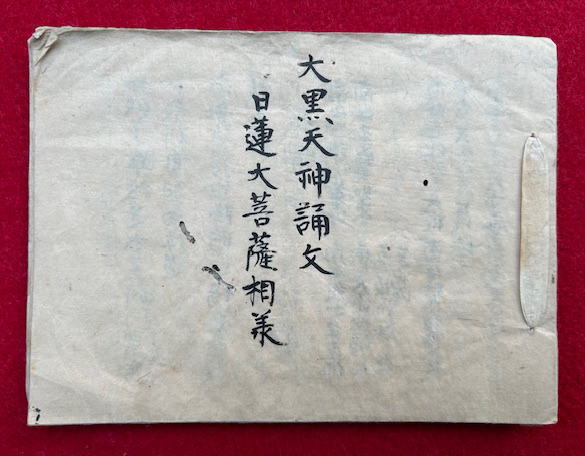 大黒天神誦文
日蓮大菩薩相承